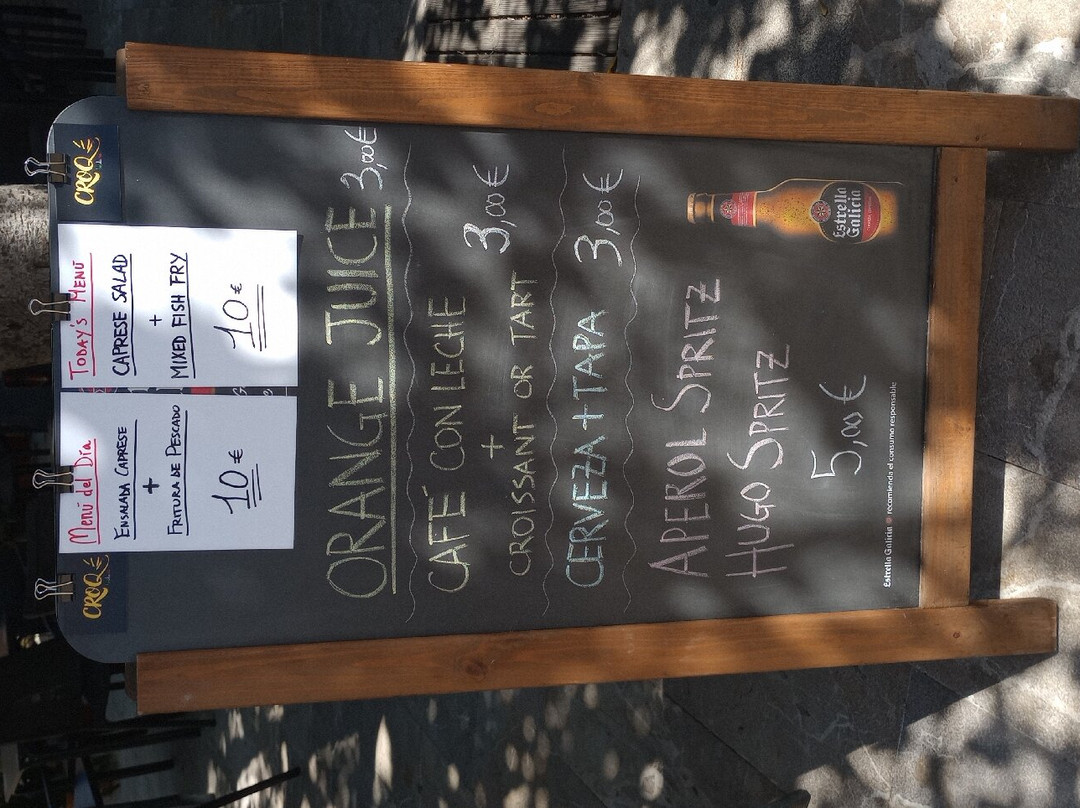 CROQ
CROQ
Menú del Día
ENSALADA CAPRESE
+
FRITURA DE PESCADO
10€
TODAY'S MENÚ
CAPRESE SALAD
+
MIXED FISH FRY
10€
ORANGE JUICE 3,00€
CAFÉ CON LECHE
+ 3,00€
CROISSANT OR TART
CERVEZA + TAPA 3,00€
APEROL SPRITZ
HUGO SPRITZ
5,00€
Estrella
Galicia
Estrella Galicia recomienda el consumo responsable